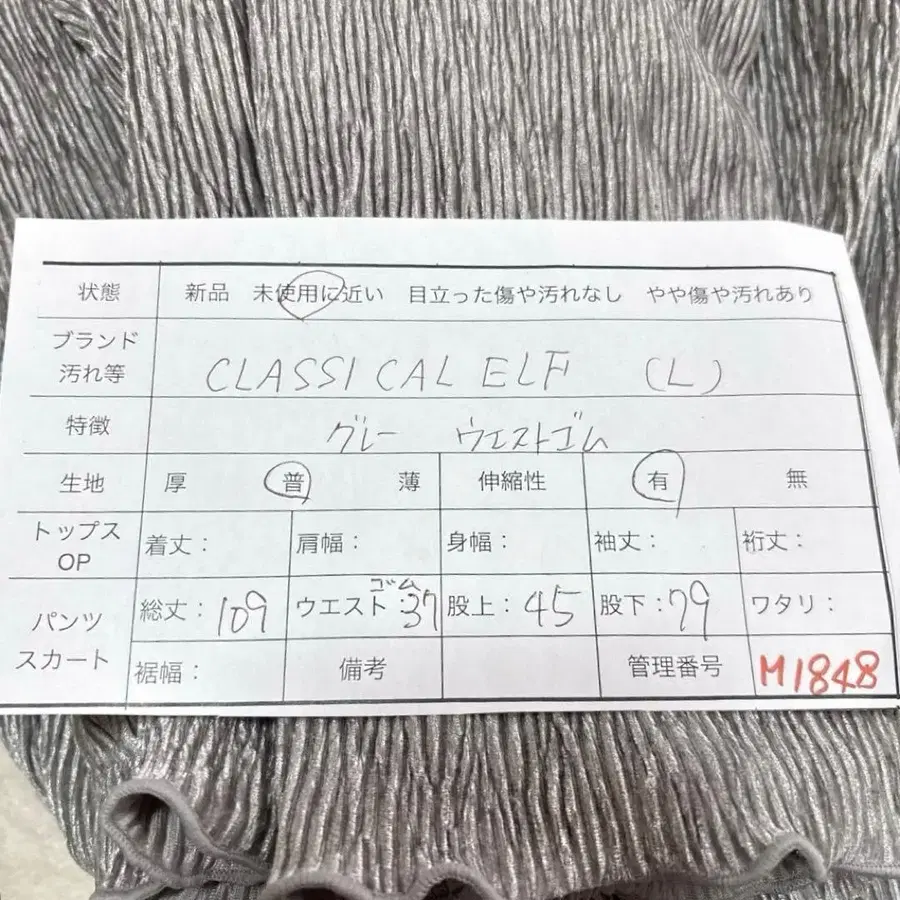 状態 新品 未使用に近い 目立った傷や汚れなし やや傷や汚れあり
ブランド
汚れ等 CLASSICAL ELF (L)
特徴 グレー ウエストゴム
生地 厚 普 薄 伸縮性 有 無
トップス
OP 着丈: 肩幅: 身幅: 袖丈: 裄丈:
ゴム
パンツ
スカート
総丈:109 ウエスト:37 股上:45 股下:79 ワタリ:
裾幅: 備考 管理番号 M1848